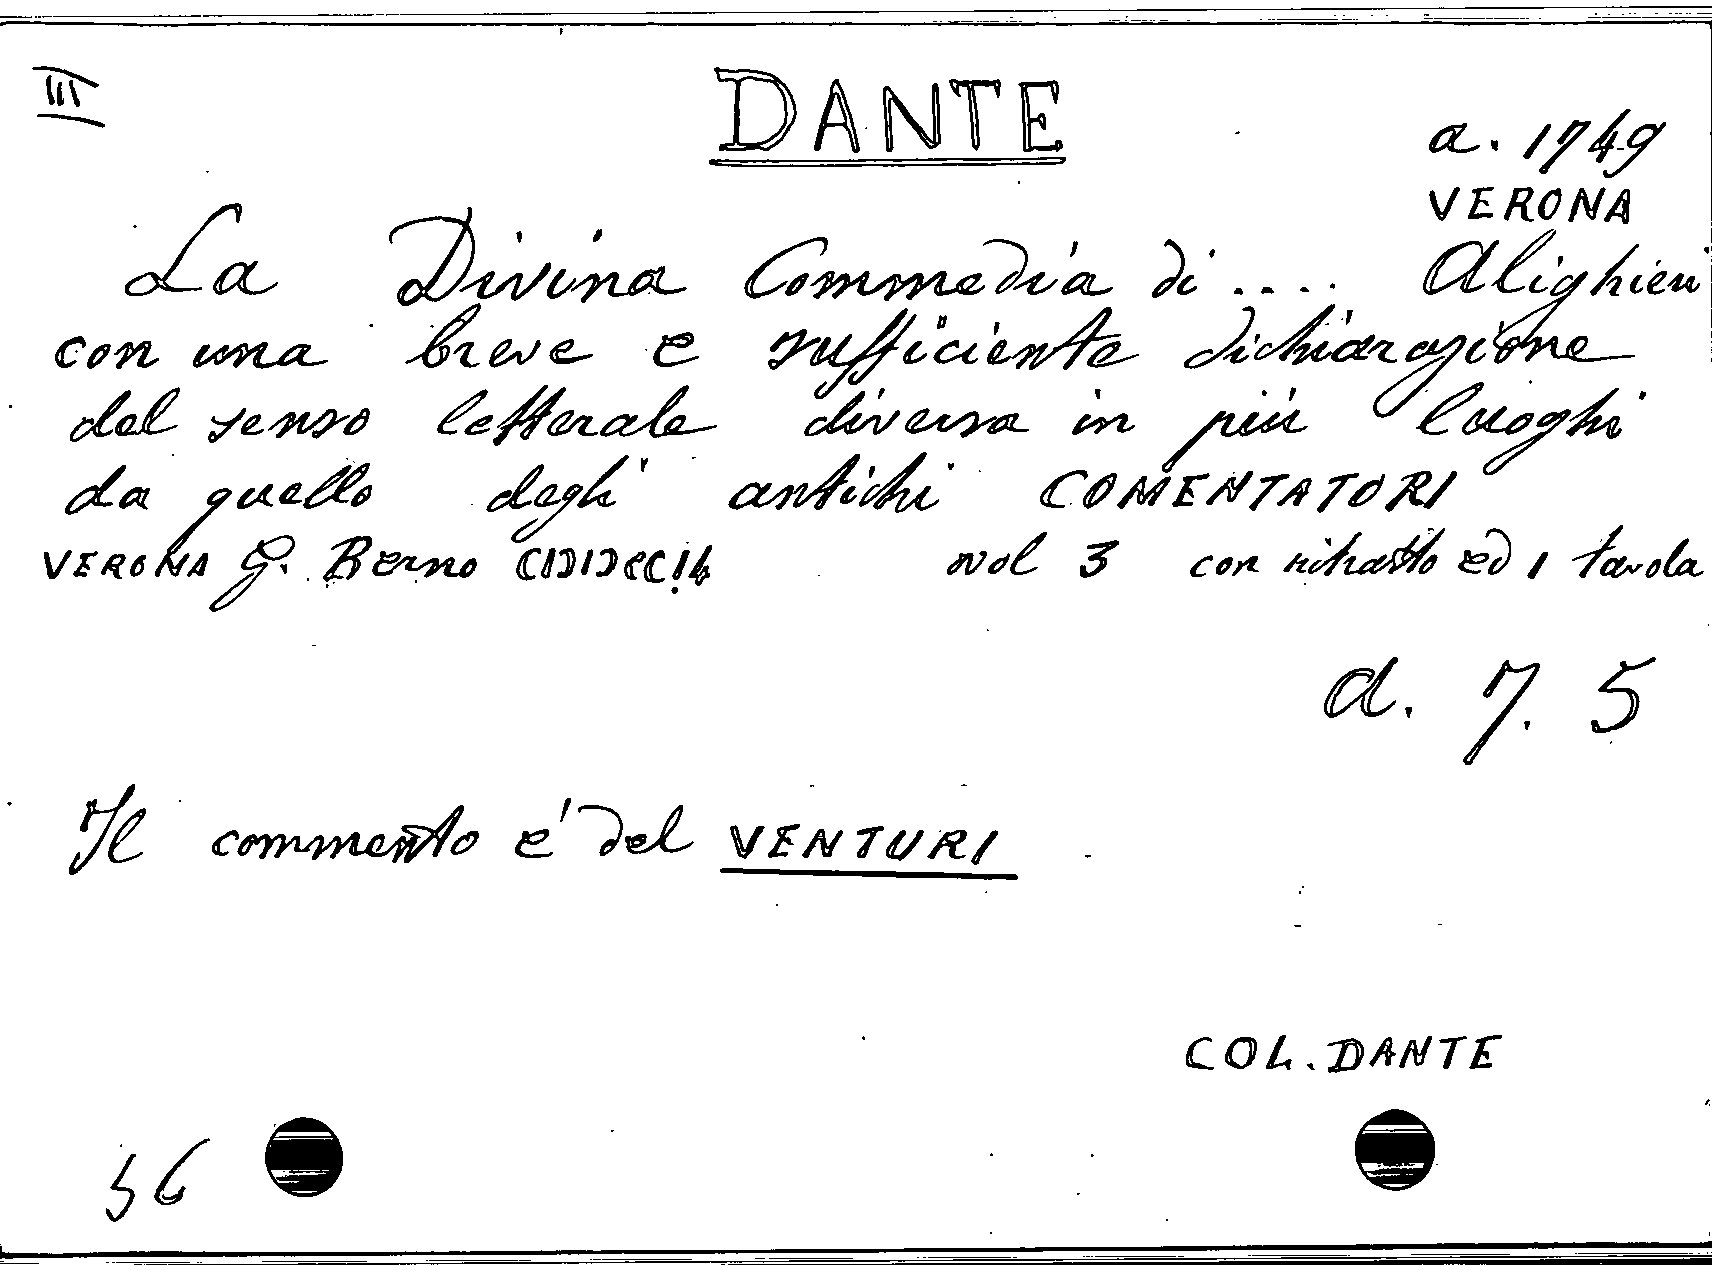 III
DANTE
a. 1749
VERONA
La Divina Commedia di .... Alighieri
con una breve e sufficiente dichiarazione
del senso letterale diversa in più luoghi
da quello degli antichi COMENTATORI
VERONA G. Berno vol 3 con ritratto ed 1 tavola
a. 7. 5
Il commento e' del VENTURI
COL. DANTE
56